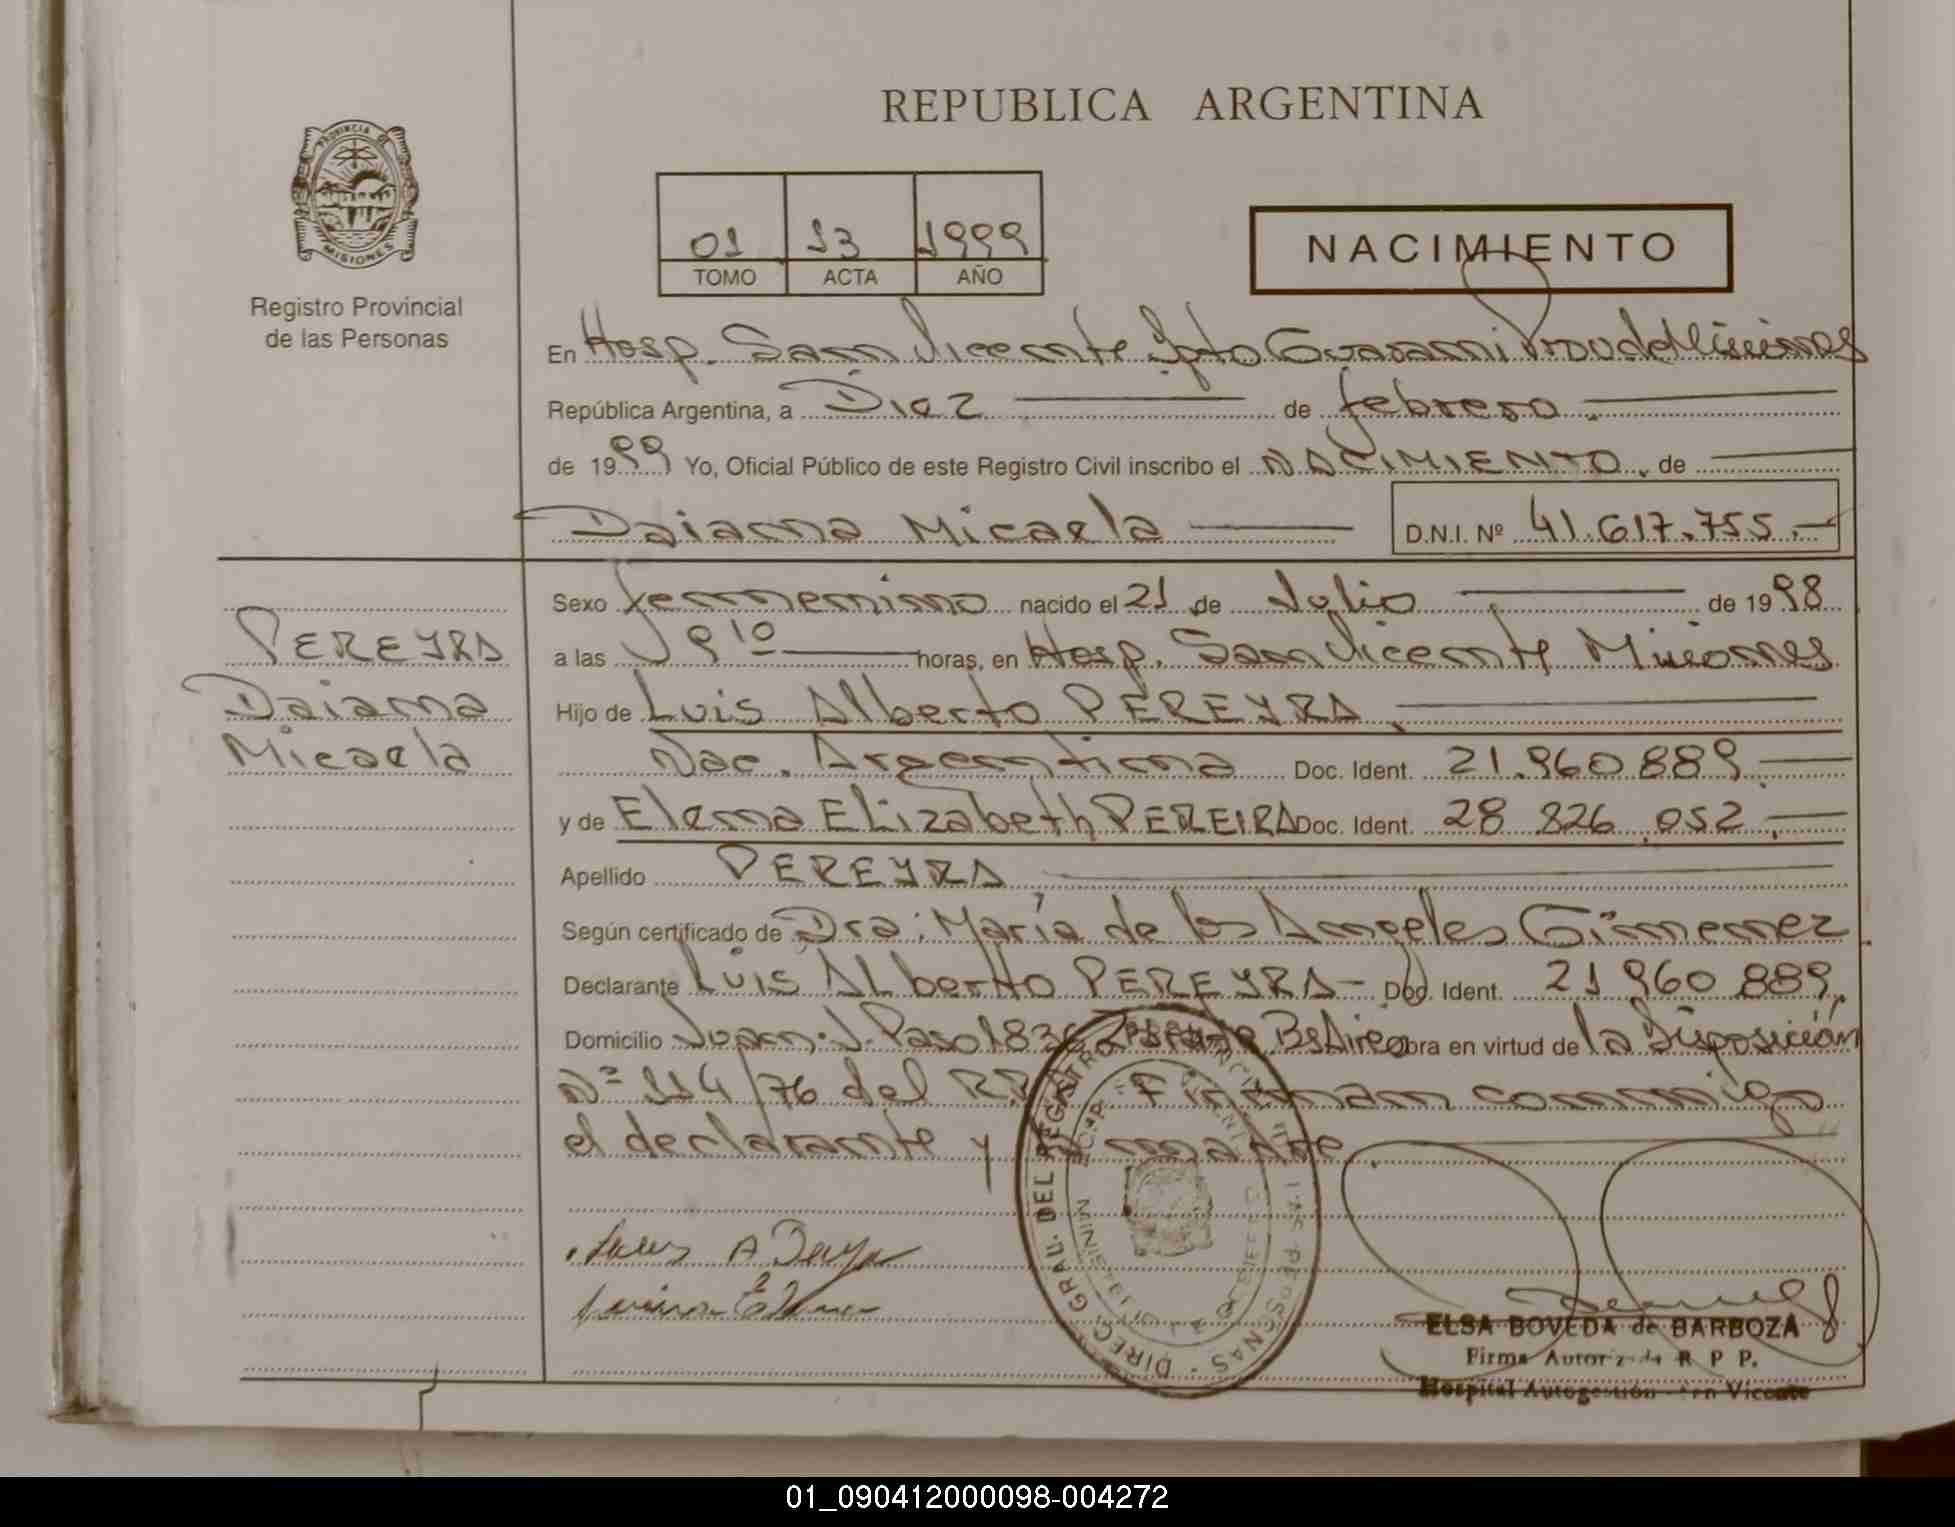 REPUBLICA ARGENTINA
PROVINCIA DE
MISIONES
Registro Provincial
de las Personas
01 13 1999
TOMO ACTA AÑO
NACIMIENTO
En Hosp. San Vicente Dpto Guarani Prov de Misiones
República Argentina, a Diez de febrero.
de 1999 Yo, Oficial Público de este Registro Civil inscribo el NACIMIENTO, de
Daiana Micaela D.N.I. Nº 41.617.755.-
Sexo femenino nacido el 21 de Julio de 1998
a las 9 10 horas, en Hosp. San Vicente Misiones
PEREYRA
Daiana
Micaela
Hijo de Luis Alberto PEREYRA
Nac. Argentina Doc. Ident. 21.960.889
y de Elena Elizabeth PEREIRA Doc. Ident. 28 826.052.
Apellido PEREYRA
Según certificado de Dra: María de los Angeles Gimenez
Declarante Luis Alberto PEREYRA- Doc. Ident. 21 960 889
Domicilio Juan J. Paso 1836 Bs Aires obra en virtud de la Disposición
Nº 114/76 del R.P.P. Firman conmigo
el declarante y la madre.
DIREC. GRAL. DEL REGISTRO PROVINCIAL DE LAS PERSONAS
ELSA BOVEDA de BARBOZA
Firma Autoriz da R P P.
Hospital Autogestión San Vicente
01_090412000098-004272